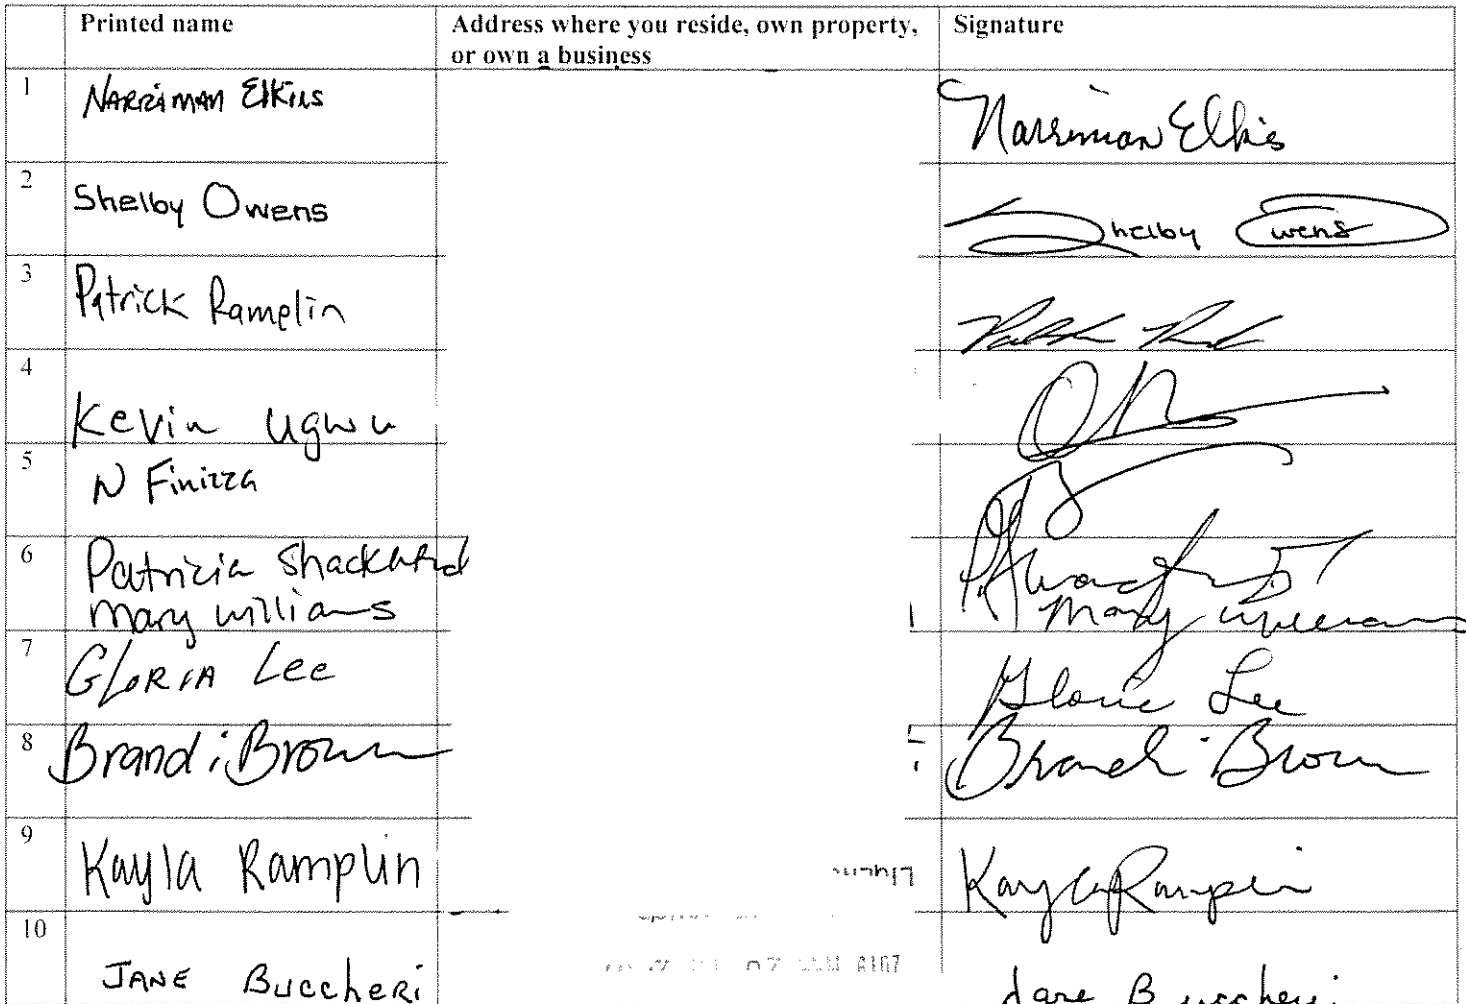 Printed name Address where you reside, own property, Signature
or own a business
1 Narriman Elkins Narriman Elkis
2 Shelby Owens Shelby Owens
3 Patrick Ramplin
4 Kevin Ugwu
5 N Finizza
6 Patricia Shackelford
Mary Williams Mary Williams
7 Gloria Lee Gloria Lee
8 Brandi Brown Brandi Brown
9 Kayla Ramplin Kayla Ramplin
10 Jane Buccheri Jane Buccheri